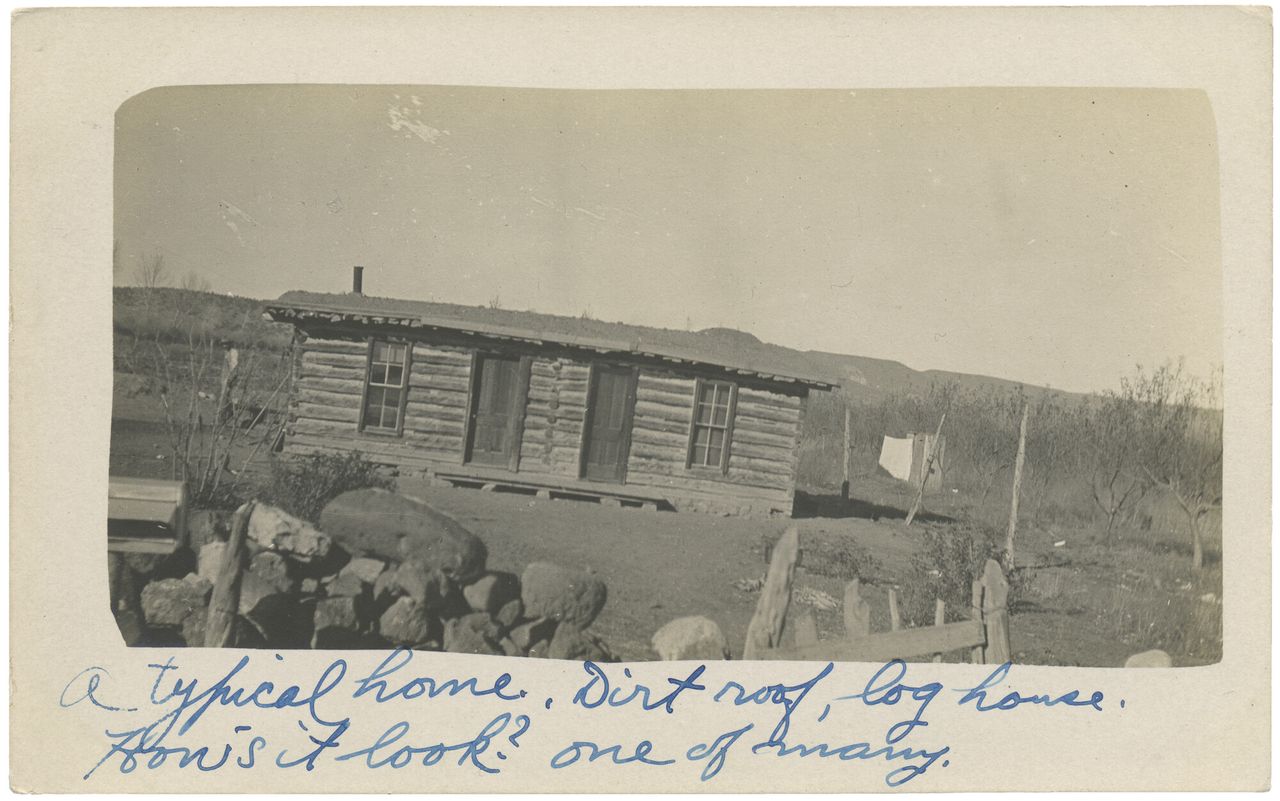 a typical home. Dirt roof, log house.
How's it look? one of many.